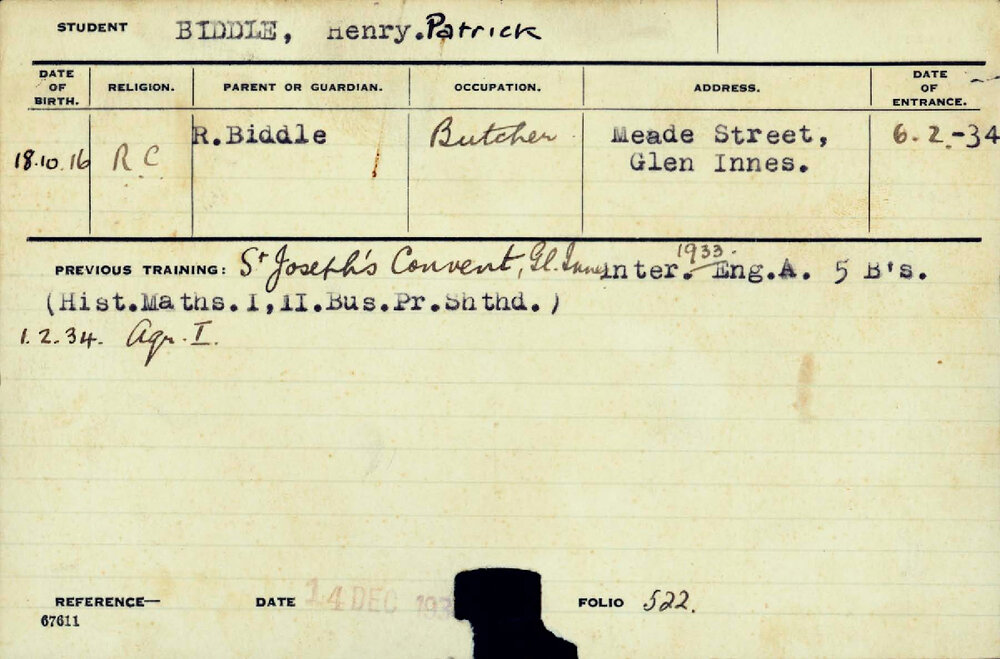 STUDENT BIDDLE, Henry.Patrick
DATE OF BIRTH. RELIGION. PARENT OR GUARDIAN. OCCUPATION. ADDRESS. DATE OF ENTRANCE.
18.10.16 R.C R.Biddle Butcher Meade Street, 6.2.-34
Glen Innes.
PREVIOUS TRAINING: St Joseph's Convent, Gl. Innes Inter. 1933. Eng.A. 5 B's.
(Hist.Maths.I,II.Bus.Pr.Shthd.)
1.2.34. Agr. I.
REFERENCE— DATE 14 DEC FOLIO 522.
67611